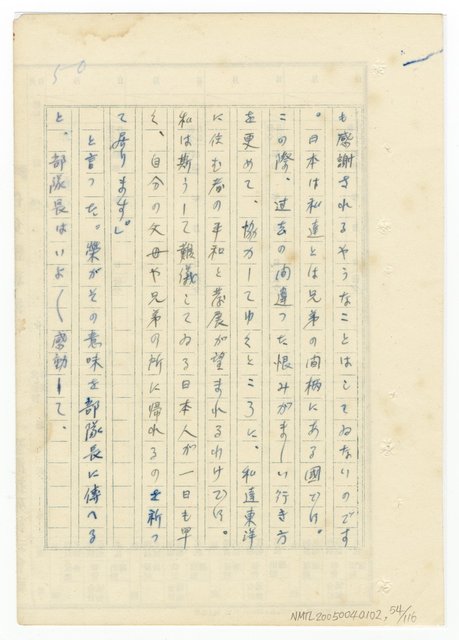 も感謝されるやうなことはしてゐないのです
。日本は私達とは兄弟の間柄にある國です。
この際、過去の間違つた恨みがましい行き方
を更めて、協力してゆくところに、私達東洋
に住む者の平和と発展が望まれるわけです。
私は斯うして難儀してゐる日本人が一日も早
く、自分の父母や兄弟の所に帰れるのを祈つ
て居ります。」
と言つた。榮がその意味を部隊長に傳へる
と、部隊長はいよ〳〵感動して、
50
NMTL20050040102, 54/116